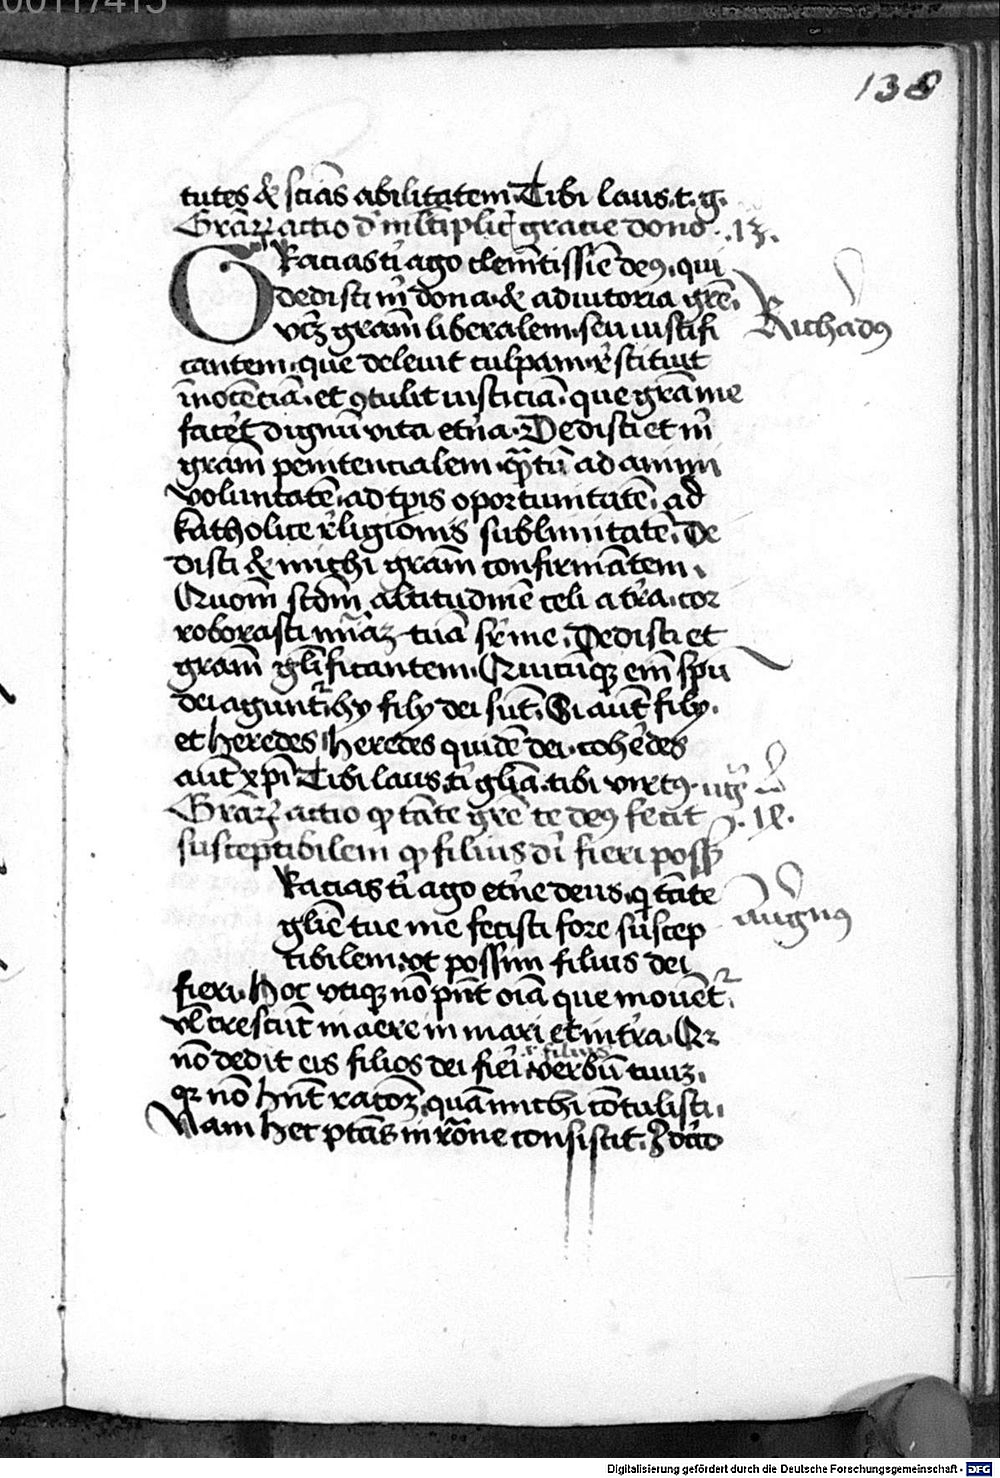 138
tutes & sciãs abilitatem. Tibi laus. t. g.
Grãꝝ actio d' mltiplici gracie dono. 13.
Gracias tī ago clemẽtissĩe deꝰ. qui
dedisti m̃ dona. & adiutoria grẽ.
Richãdꝰ
vcꝫ grãm liberalem. seu iustifi
cantem. que deleuit culpam. r̃stituit
ĩnocẽciã. et ꝯtulit iusticiã. que grã me
facẽt dignũ vita etña. Dedisti et m̃
grãm penitencialem. q̃tũ ad animi
voluntatẽ. ad tp̃is oportunitatẽ. ad
katholice r̃ligionis sublimitatẽ. De
disti & michi grãm confirmãtem.
Qm̃ scdm̃ altitudinẽ celi a tr̃a. cor
roborasti mĩaꝫ tuã sr̃ me. Dedisti et
grãm gl̃ificantem. Quicũqꝫ em̃ spũ
dei agunt̃. hy filÿ dei sũt. Si aũt filÿ.
et heredes. heredes quidẽ dei. cohẽdes
aũt xp̃i. Tibi laus. tī gl̃ia. tibi virtꝰ.
Grãꝝ actio qꝫ tãte grẽ te deꝰ fecit
susceptibilem qꝫ filius dĩ fieri posseꝫ
Gracias tī ago etñe deus. qꝫ tãte
gl̃ie tue me fecisti fore suscep
tibilem. vt possim filius dei
fieri. Hoc vtiqꝫ nõ pñt oĩa que mouẽt̃.
vl̃ crescũt in aere in mari et in tr̃a. Qꝛ
nõ dedit eis filios dei fiẽi
r̃ filius
verbũ tuũ.
qꝛ nõ hñt racõeꝫ. quã michi cõtulisti.
Nam hec ptãs in rõne consistit.
Digitalisierung gefördert durch die Deutsche Forschungsgemeinschaft - DFG